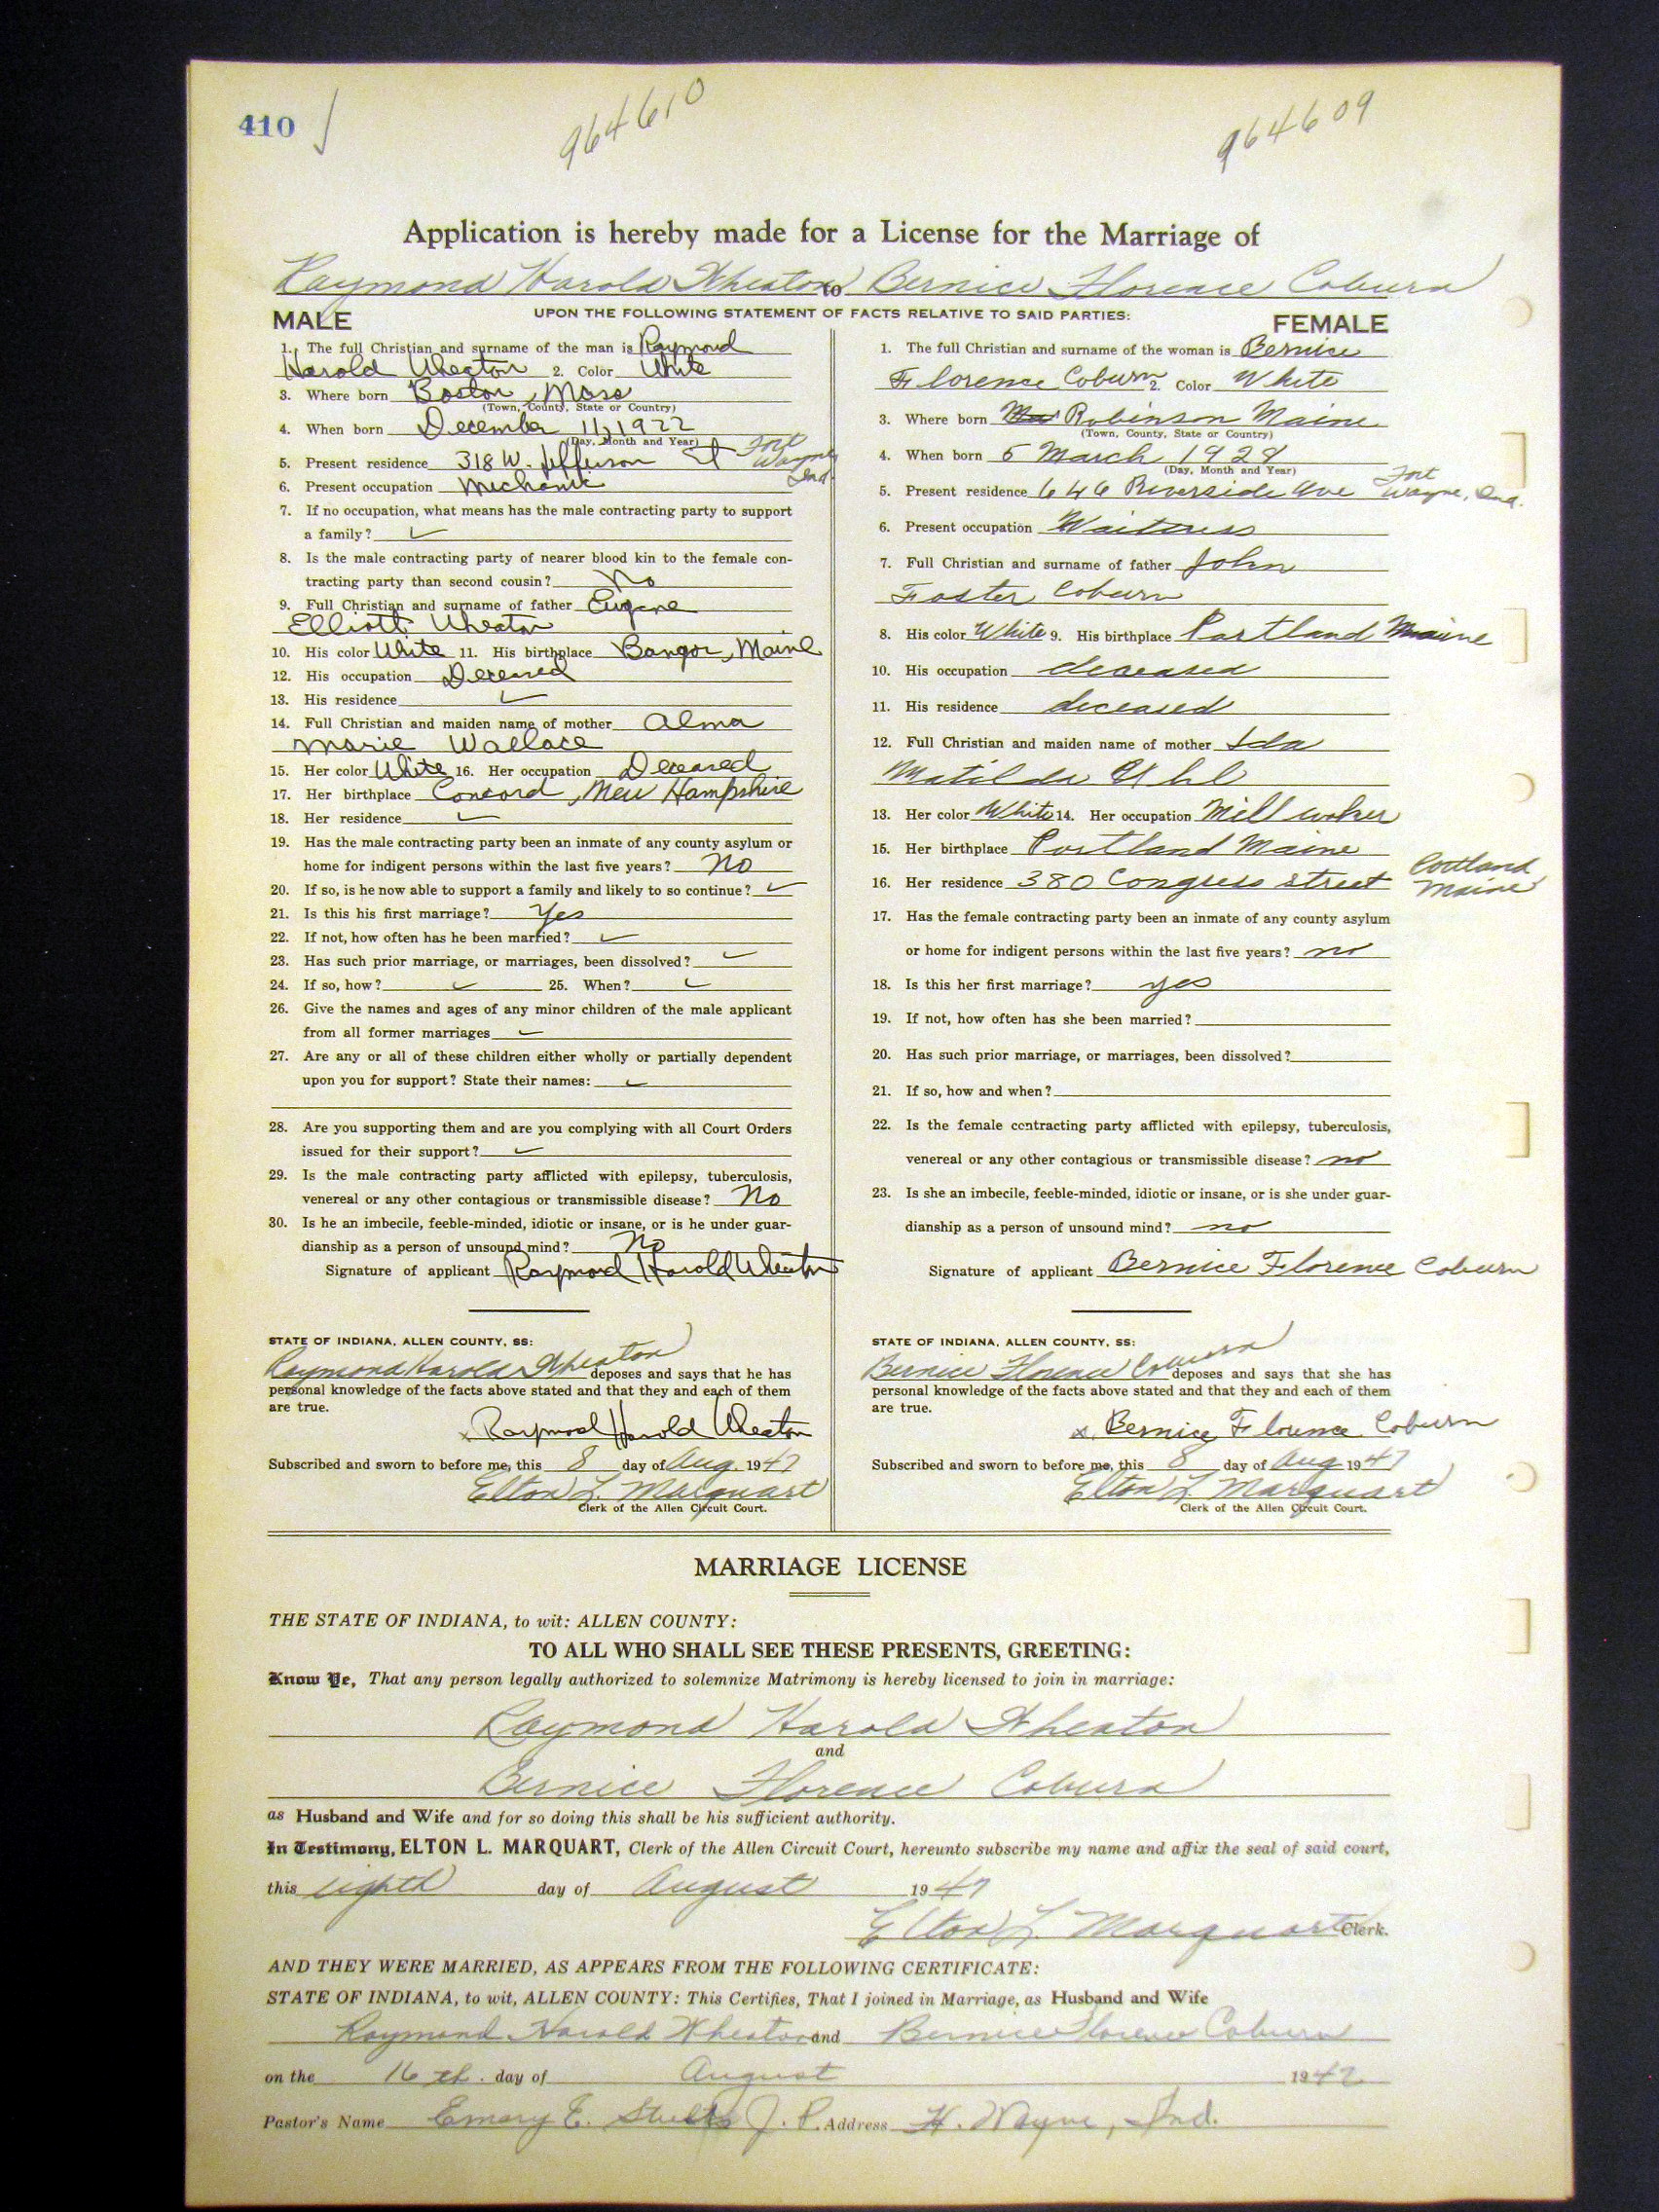 410
964610
964609
Application is hereby made for a License for the Marriage of
Raymond Harold Wheaton to Bernice Florence Coburn
UPON THE FOLLOWING STATEMENT OF FACTS RELATIVE TO SAID PARTIES:
MALE
1. The full Christian and surname of the man is Raymond
Harold Wheaton 2. Color White
3. Where born Boston, Mass
(Town, County, State or Country)
4. When born December 11, 1922
(Day, Month and Year)
5. Present residence 318 W. Jefferson St Fort Wayne Ind
6. Present occupation Mechanic
7. If no occupation, what means has the male contracting party to support
a family? ✓
8. Is the male contracting party of nearer blood kin to the female con-
tracting party than second cousin? No
9. Full Christian and surname of father Eugene
Elliott Wheaton
10. His color White 11. His birthplace Bangor, Maine
12. His occupation Deceased
13. His residence ✓
14. Full Christian and maiden name of mother Alma
Marie Wallace
15. Her color White 16. Her occupation Deceased
17. Her birthplace Concord, New Hampshire
18. Her residence ✓
19. Has the male contracting party been an inmate of any county asylum or
home for indigent persons within the last five years? No
20. If so, is he now able to support a family and likely to so continue? ✓
21. Is this his first marriage? Yes
22. If not, how often has he been married? ✓
23. Has such prior marriage, or marriages, been dissolved? ✓
24. If so, how? ✓ 25. When? ✓
26. Give the names and ages of any minor children of the male applicant
from all former marriages ✓
27. Are any or all of these children either wholly or partially dependent
upon you for support? State their names: ✓
28. Are you supporting them and are you complying with all Court Orders
issued for their support? ✓
29. Is the male contracting party afflicted with epilepsy, tuberculosis,
venereal or any other contagious or transmissible disease? No
30. Is he an imbecile, feeble-minded, idiotic or insane, or is he under guar-
dianship as a person of unsound mind? No
Signature of applicant Raymond Harold Wheaton
STATE OF INDIANA, ALLEN COUNTY, SS:
Raymond Harold Wheaton deposes and says that he has
personal knowledge of the facts above stated and that they and each of them
are true.
x Raymond Harold Wheaton
Subscribed and sworn to before me, this 8 day of Aug. 1947
Elton L. Marquart
Clerk of the Allen Circuit Court.
FEMALE
1. The full Christian and surname of the woman is Bernice
Florence Coburn 2. Color White
3. Where born Robinson Maine
(Town, County, State or Country)
4. When born 5 March 1928
(Day, Month and Year)
5. Present residence 646 Riverside Ave Fort Wayne, Ind.
6. Present occupation Waitress
7. Full Christian and surname of father John
Foster Coburn
8. His color White 9. His birthplace Portland Maine
10. His occupation deceased
11. His residence deceased
12. Full Christian and maiden name of mother Ida
Matilda Uhl
13. Her color White 14. Her occupation Mill worker
15. Her birthplace Portland Maine
16. Her residence 380 Congress street Portland Maine
17. Has the female contracting party been an inmate of any county asylum
or home for indigent persons within the last five years? no
18. Is this her first marriage? yes
19. If not, how often has she been married?
20. Has such prior marriage, or marriages, been dissolved?
21. If so, how and when?
22. Is the female contracting party afflicted with epilepsy, tuberculosis,
venereal or any other contagious or transmissible disease? no
23. Is she an imbecile, feeble-minded, idiotic or insane, or is she under guar-
dianship as a person of unsound mind? no
Signature of applicant Bernice Florence Coburn
STATE OF INDIANA, ALLEN COUNTY, SS:
Bernice Florence Coburn deposes and says that she has
personal knowledge of the facts above stated and that they and each of them
are true.
x Bernice Florence Coburn
Subscribed and sworn to before me, this 8 day of Aug 1947
Elton L Marquart
Clerk of the Allen Circuit Court.
MARRIAGE LICENSE
THE STATE OF INDIANA, to wit: ALLEN COUNTY:
TO ALL WHO SHALL SEE THESE PRESENTS, GREETING:
Know Ye, That any person legally authorized to solemnize Matrimony is hereby licensed to join in marriage:
Raymond Harold Wheaton
and
Bernice Florence Coburn
as Husband and Wife and for so doing this shall be his sufficient authority.
In Testimony, ELTON L. MARQUART, Clerk of the Allen Circuit Court, hereunto subscribe my name and affix the seal of said court,
this eighth day of August 1947
Elton L. Marquart Clerk.
AND THEY WERE MARRIED, AS APPEARS FROM THE FOLLOWING CERTIFICATE:
STATE OF INDIANA, to wit, ALLEN COUNTY: This Certifies, That I joined in Marriage, as Husband and Wife
Raymond Harold Wheaton and Bernice Florence Coburn
on the 16th. day of August 1947
Pastor's Name Emery E. J. P. Address Ft. Wayne, Ind.